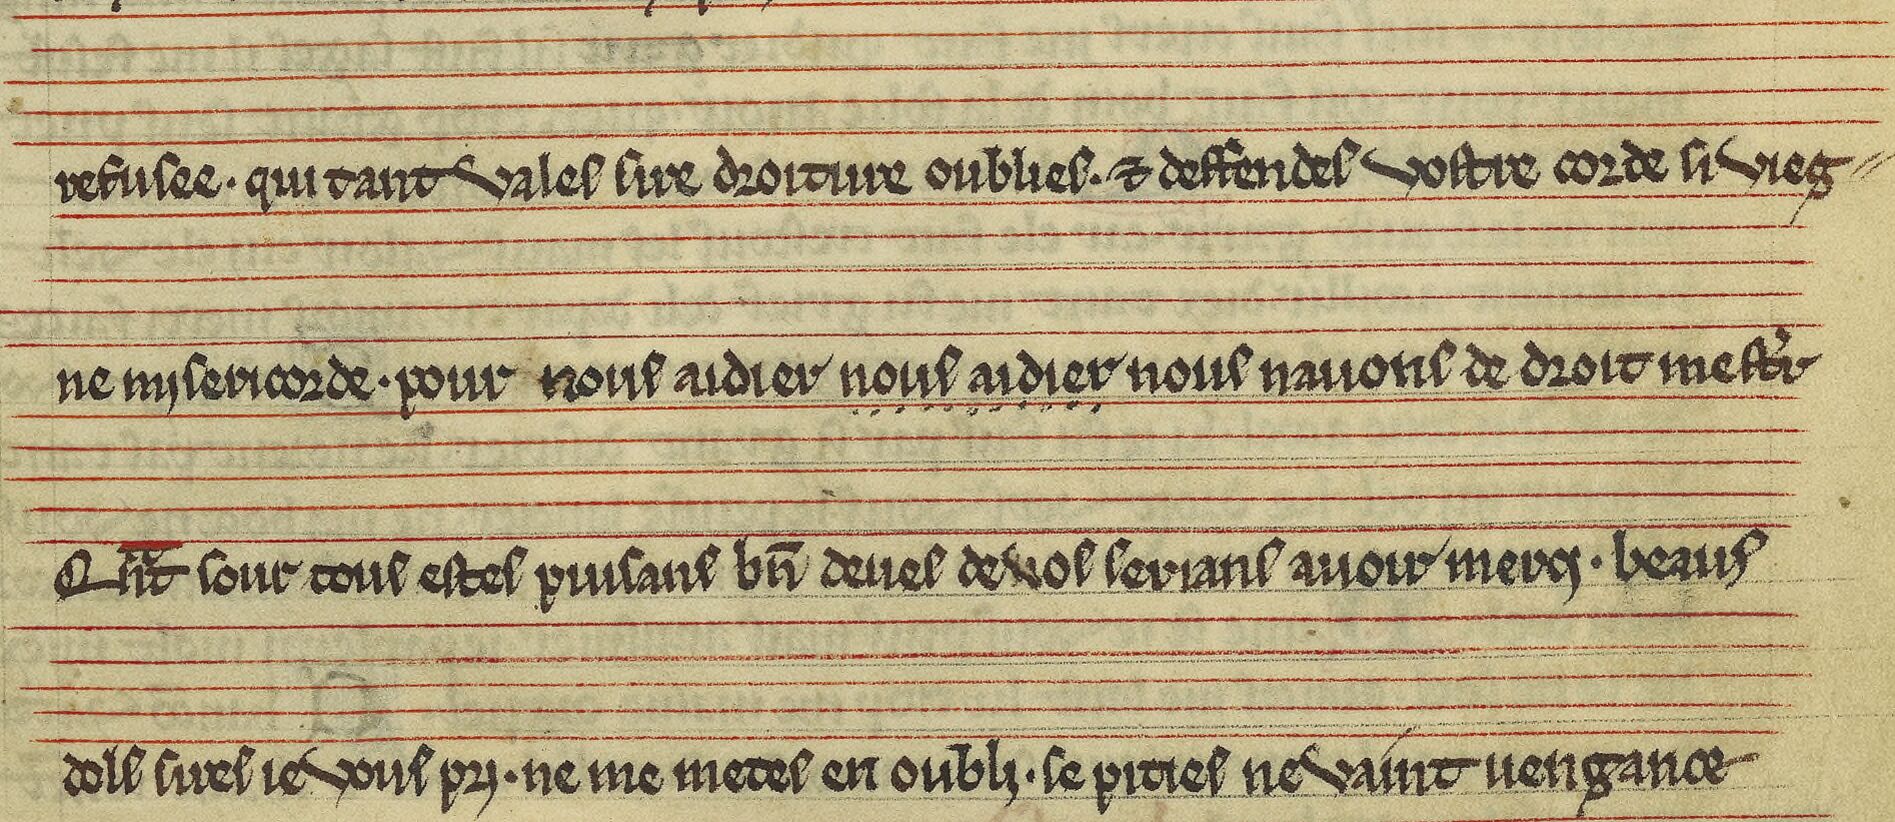 refusee · qui tant vales sire droiture oublies · ⁊ deffendes vostre corde si vieg〃
ne misericorde · pour nous aidier nous aidier nous nauons de droit mest̉
Qn̄t sour tous estes puisans bn̄ deues de vos serians auoir mercy · beaus
dols sires ie vous pry · ne me metes en oubly · se pities ne vaint uengance